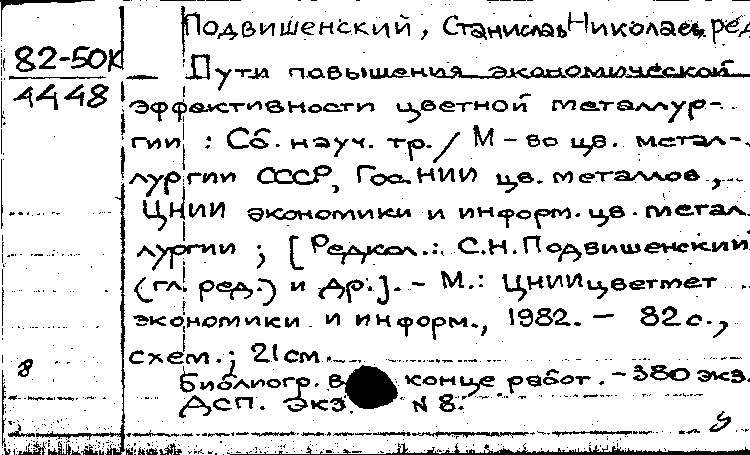 Подвишенский, Станислав Николаев, ред
82-50К
4448
Пути повышения экономической
эффективности цветной металлур-
гии : Сб. науч. тр. / М-во цв. метал-
лургии СССР, Гос. НИИ цв. металлов,
ЦНИИ экономики и информ. цв. метал
лургии ; [Редкол.: С.Н. Подвишенский
(гл. ред.) и др.]. - М.: ЦНИИцветмет
экономики и информ., 1982. - 82 с.,
схем.; 21 см.
8
Библиогр. в конце работ. - 380 экз.
ДСП. Экз. N 8.